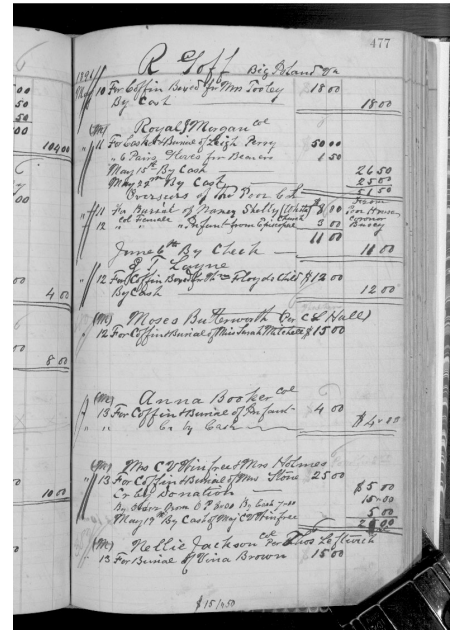 477
R Goff Big Island Va
May 10 For Coffin Boxed for Mrs Tooley $18 00
By Cash 18 00
(Mc) Royal J Morgan col
" 11 For Casket & Burial of Leigh Perry 50 00
" 6 Pairs Gloves for Bearers 1 50
May 15th By Cash 26 50
May 29th By Cash 25 00
51 50
Overseers of the Poor C L
" 11 For Burial of Nancy Shelly (White) $8 00 From Poor House
12 Col Female " " Infant from Episcopal Church 3 00
11 00
June 6th By Check 11 00
E T Layne
12 For Coffin Boxed for Floyds Child $12 00
By Cash 12 00
(Mc) Moses Butterworth (Per C L Hall)
12 For Coffin & Burial of Miss Sarah Mitchell $15 00
(Mc) Anna Booker col
" 13 For Coffin & Burial of Infant 4 00
" " Cr by Cash $4 00
(Mc) Mrs C V Winfree & Mrs Holmes
" 13 For Coffin & Burial of Mrs Stone 25 00
Cr by Donation $5 00
By Cash 15 00
May 19th By Cash of Maj C V Winfree 5 00
25 00
(Mc) Nellie Jackson col Per Thos Leftwich
" 13 For Burial of Vina Brown 15 00
$15/450
104 00
4 00
8 00
10 00